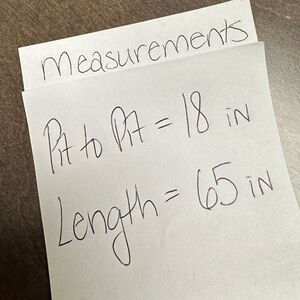 measurements
Pit to Pit = 18 iN
Length = 65 iN